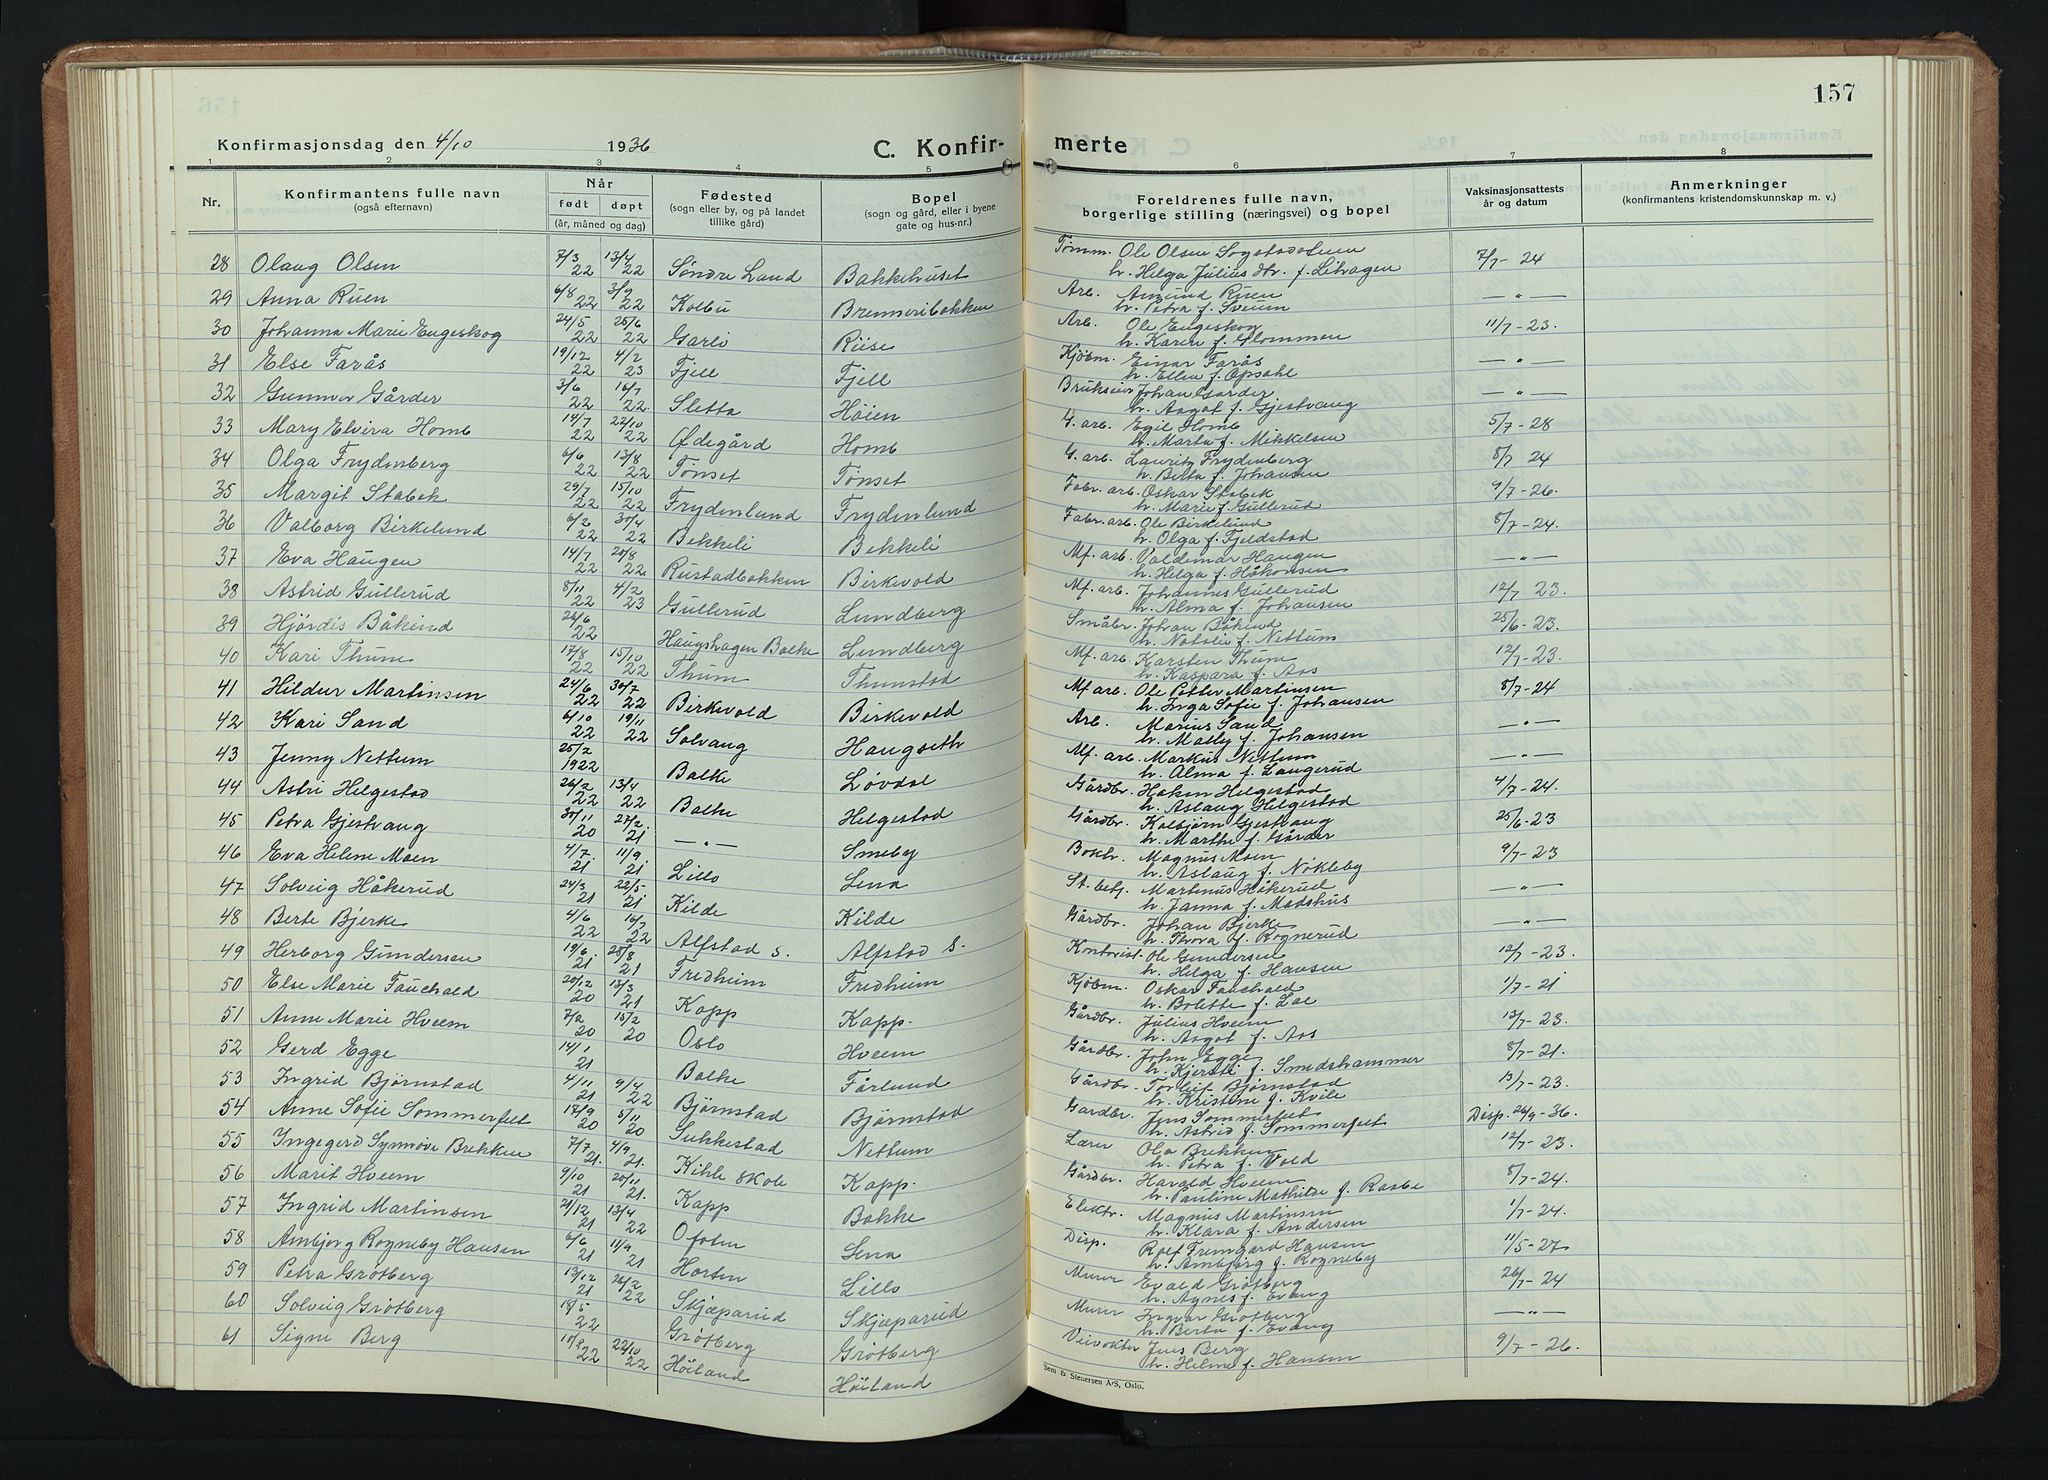 157
Konfirmasjonsdag den 4/10 1936
C. Konfir- merte
1 2 3 4 5 6 7 8
Nr. Konfirmantens fulle navn (også efternavn) Når født døpt (år, måned og dag) Fødested (sogn eller by, og på landet tillike gård) Bopel (sogn og gård, eller i byene gate og hus-nr.) Foreldrenes fulle navn, borgerlige stilling (næringsvei) og bopel Vaksinasjonsattests år og datum Anmerkninger (konfirmantens kristendomskunnskap m. v.)
28 Olaug Olsen 7/3 22 13/4 22 Søndre Land Bakkehuset Tømm. Ole Olsen 7/7-24
h. Helga Julius dtr. f. Lihagen
29 Anna Ruen 6/8 22 3/9 22 Kolbu Brenneribakken Arb. Amund Ruen —„—
h. Petra f. Sveum
30 Johanna Marie Engeskog 24/5 22 25/6 22 Garli Riise Arb. Ole Engeskog 11/7-23.
h. Karen f. Glommen
31 Else Farås 19/12 22 4/2 23 Fjell Fjell Kjøbm. Einar Farås —„—
h. Ellen f. Opsahl
32 Gunvor Gårder 3/6 22 16/7 22. Sletta Høien Brukseier Johan Gårder —„—
h. Aagot f. Gjestvang
33 Mary Elvira Homb 14/7 22 22/10 22 Ødegård Homb G. arb. Egil Homb 5/7-28
h. Marta f. Mikkelsen
34 Olga Frydenberg 6/6 22 13/8 22 Tønset Tønset G. arb. Lauritz Frydenberg 8/7 24
h. Berta f. Johansen
35 Margit Stabek 29/7 22 15/10 22 Frydenlund Frydenlund Fabr. arb. Oskar Stabek 9/7-26.
h. Marie f. Gullerud
36 Valborg Birkelund 6/2 22 30/4 22 Bekkeli Bekkeli Fabr. arb. Ole Birkelund 8/7-24.
h. Olga f. Fjeldstad
37 Eva Haugen 14/7 22 20/8 22 Rustadbakken Birkevold Mf. arb. Valdemar Haugen —„—
h. Helga f. Håkonsen
38 Astrid Gullerud 8/11 22 4/2 23 Gullerud Lundberg Mf. arb. Johannes Gullerud 12/7 23.
h. Alma f. Johansen
39 Hjørdis Båkind 26/6 22 Haugshagen Balke Lundberg Småbr. Johan Båkind 25/6-23.
h. Natalie f. Nettum
40 Kari Thune 17/8 22 15/10 22 Thum Thunstad Mf. arb. Karsten Thune 12/7-23.
h. Kaspara f. Aas
41 Hildur Martinsen 24/6 22 30/7 22 Birkevold Birkevold Mf arb. Ole Petter Martinsen 8/7-24
h. Inga Sofie f. Johansen
42 Kari Sand 6/10 22 19/11 22 Solvang Haugseth Arb. Marius Sand —„—
h. Mally f. Johansen
43 Jenny Nettum 25/2 1922 Balke Løvdal Mf. arb. Markus Nettum —„—
h. Alma f. Laugerud
44 Astri Helgestad 26/2 22 13/4 22 Balke Helgestad Gårdbr. Håkon Helgestad 4/7-24.
h. Aslaug Helgestad
45 Petra Gjestvang 30/11 20 27/2 21 —„— Smeby Gårdbr. Kolbjørn Gjestvang 25/6-23
h. Marthe f. Gårder
46 Eva Helene Moen 4/7 21 11/9 21 Lillo Lena Bokh. Magnus Moen 9/7-23
h. Aslaug f. Nøkleby
47 Solveig Håkerud 24/3 21 22/5 21 Kilde Kilde St. betj. Martinus Håkerud —„—
h. Janna f. Madshus
48 Berte Bjerke 4/6 22 16/7 22 Alfstad s. Alfstad s. Gårdbr. Johan Bjerke —„—
h. Thora f. Rognerud
49 Herborg Gundersen 19/6 21 28/8 21 Fredheim Fredheim Kontorist Ole Gundersen 12/7-23.
h. Helga f. Hansen
50 Else Marie Fauchald 20/12 20 13/3 21 Kapp Kapp. Kjøbm. Oskar Fauchald 1/7-21
h. Bolette f. Loe
51 Anne Marie Hveem 7/2 20 15/2 20 Oslo Hveem Gårdbr. Julius Hveem 13/7-23.
h. Aagot f. Aas
52 Gerd Egge 14/1 21 Balke Fårlund Gårdbr. John Egge 8/7-21.
h. Kjersti f. Smedshammer
53 Ingrid Bjørnstad 4/11 21 9/4 22 Bjørnstad Bjørnstad Gårdbr. Torleif Bjørnstad 13/7-23.
h. Kristine f. Kvile
54 Anne Sofie Sommerfelt 17/9 20 5/11 20 Sukkestad Nettum Gårdbr. Jens Sommerfelt Disp. 26/9-36.
h. Astrid f. Sommerfelt
55 Ingegerd Synnøve Brekken 7/7 21. 4/9 21. Kihle skole Kapp. Lærer Ola Brekken 12/7-23.
h. Petra f. Vold
56 Marit Hveem 9/10 21 20/11 21. Kapp Bakke Gårdbr. Harald Hveem 8/7-24.
h. Pauline Mathilde f. Raabe
57 Ingrid Martinsen 21/12 21 13/4 22 Ofoten Lena Elektr. Magnus Martinsen 1/7-24.
h. Klara f. Andersen
58 Ambjørg Rogneby Hansen 6/6 21 11/9 21 Horten Lillo Disp. Rolf Fremgard Hansen 11/5-27
h. Ambjørg f. Rogneby
59 Petra Grøtberg 13/12 21 26/2 22 Skjæparud Skjæparud Murer Evald Grøtberg 26/7-24
h. Agnes f. Evang
60 Solveig Grøtberg 18/5 22 Grøtberg Grøtberg Murer Ingvar Grøtberg —„—
h. Berta f. Evang
61 Signe Berg 10/9 22 22/10 22 Høiland Høiland Veivokter Jens Berg 9/7-26.
h. Helene f. Hansen
Sem & Stenersen A/S, Oslo.